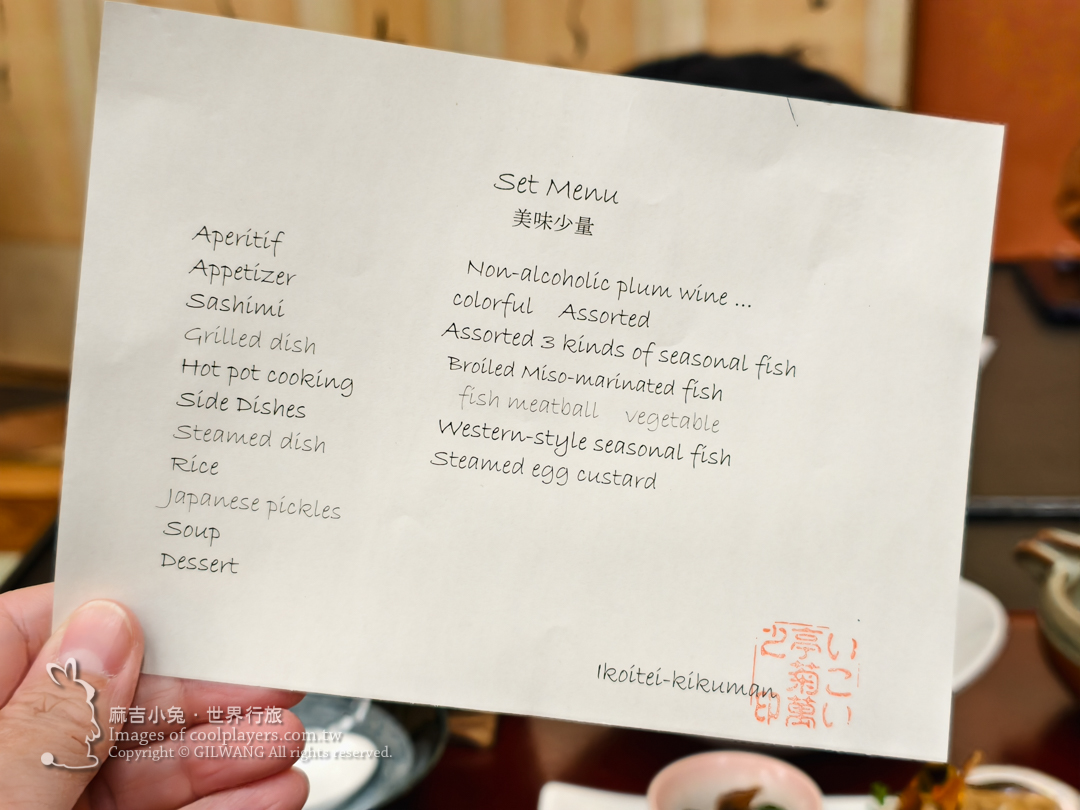 Set Menu
美味少量
Aperitif
Appetizer
Sashimi
Grilled dish
Hot pot cooking
Side Dishes
Steamed dish
Rice
Japanese pickles
Soup
Dessert
Non-alcoholic plum wine ...
colorful Assorted
Assorted 3 kinds of seasonal fish
Broiled Miso-marinated fish
fish meatball vegetable
Western-style seasonal fish
Steamed egg custard
Ikoitei-kikuman
いこい
亭菊萬
印
麻吉小兔·世界行旅
Images of coolplayers.com.tw
Copyright © GILWANG All rights reserved.